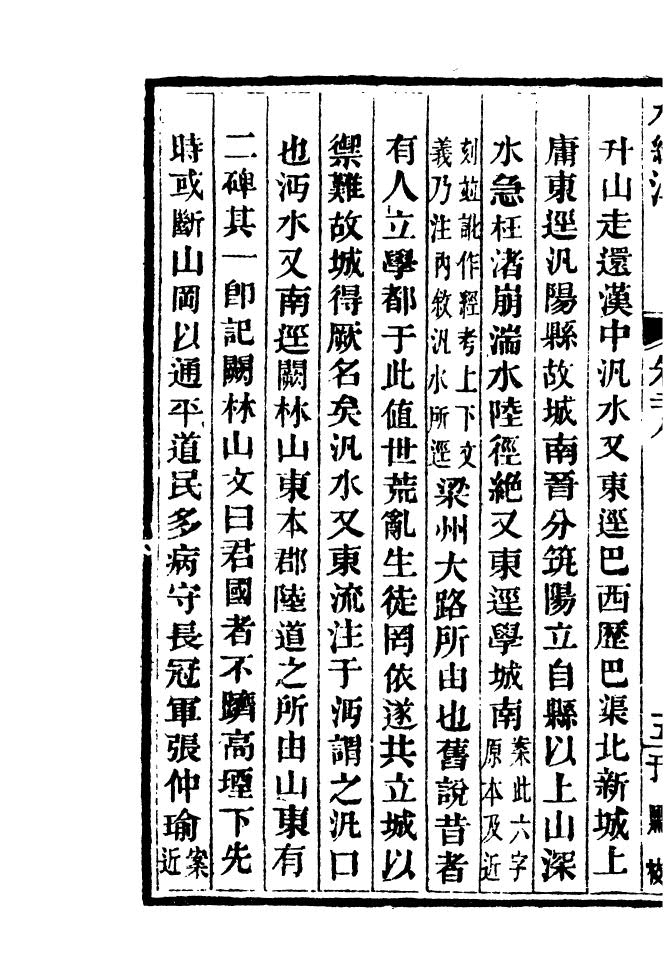 升山走還漢中汎水又東逕巴西歷巴渠北新城上
庸東逕汎陽縣故城南晉分筑陽立自縣以上山深
水急枉渚崩湍水陸徑絕又東逕學城南案此六字原本及近
刻並訛作經考上下文義乃注內敘汎水所逕梁州大路所由也舊說昔者
有人立學都于此值世荒亂生徒罔依遂共立城以
禦難故城得厥名矣汎水又東流注于沔謂之汎口
也沔水又南逕闕林山東本郡陸道之所由山東有
二碑其一卽記闕林山文曰君國者不躋高堙下先
時或斷山岡以通平道民多病守長冠軍張仲瑜案近